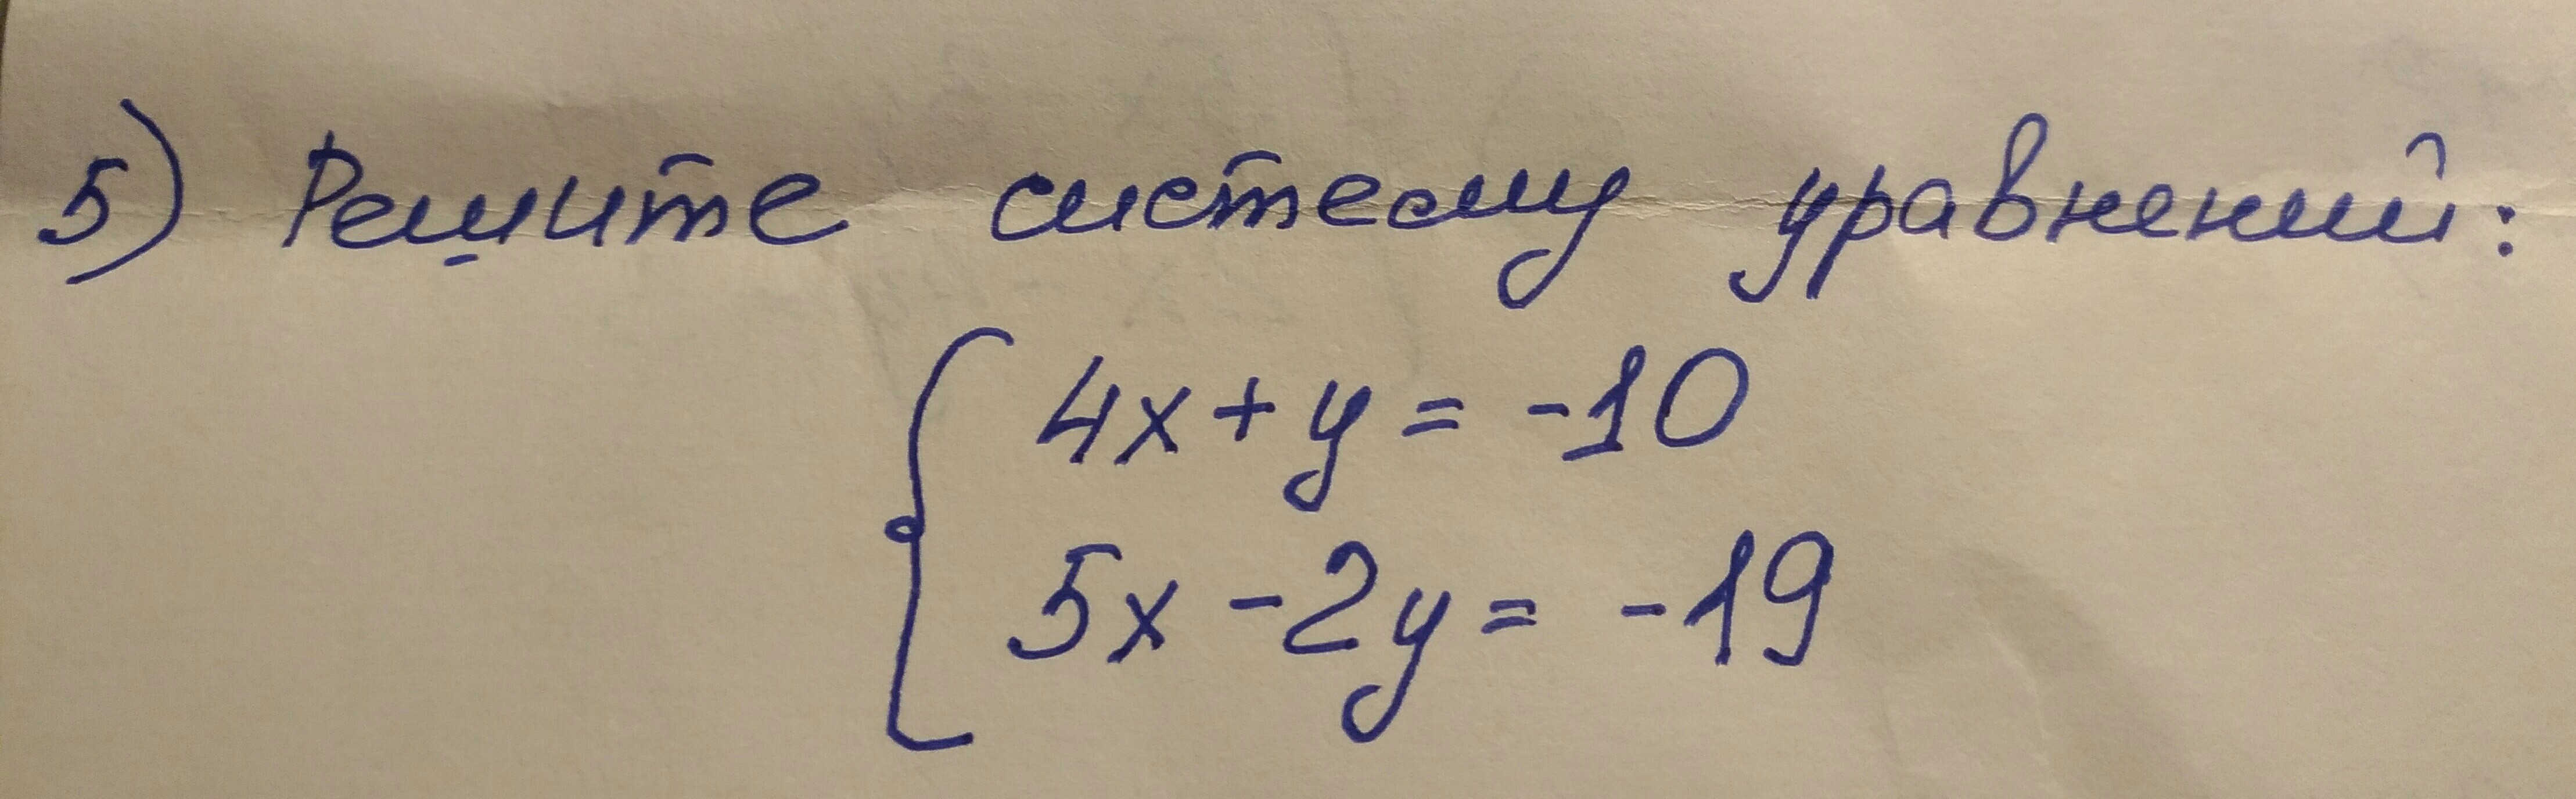 5) Решите систему уравнений:
4x + y = -10
5x - 2y = -19